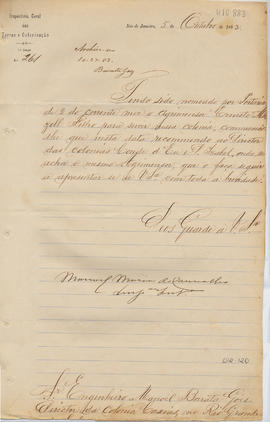 Inspectoria Geral
das
Terras e Colonização
Nº 261
Rio de Janeiro, 5 de Outubro de 1883.
Archive-se
Barata Góes
Tendo sido nomeado por Portaria
de 2 do corrente mez o Agrimensor Ernesto
Filho para servir nessa colonia, communico-
lhe que nesta data recommendo ao Director
das colonias Conde d'Eu e D. Isabel, onde se
acha o mesmo Agrimensor, que o faça seguir
a apresentar-se a V. Sª com toda a brevidade.
Deus Guarde a V. Sª
Manoel Maria de Carvalho
Sr. Engenheiro Manoel Barata Góes
Director da Colonia Caxias, no Rio Grande